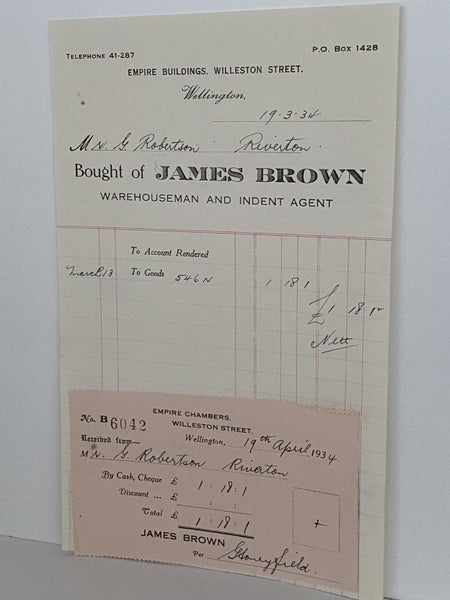 TELEPHONE 41-287 P.O. BOX 1428
EMPIRE BUILDINGS, WILLESTON STREET.
Wellington,
19·3·34
Mr. G Robertson Riverton.
Bought of JAMES BROWN
WAREHOUSEMAN AND INDENT AGENT
To Account Rendered
March 13 To Goods 546N 1 18 1
£1 18 1
Nett
No. B 6042 EMPIRE CHAMBERS,
WILLESTON STREET,
Received from— Wellington, 19th April 1934
Mr. G. Robertson Riverton
By Cash, Cheque £ 1 : 18 : 1
Discount ... £ : :
Total £ 1 : 18 : 1
JAMES BROWN
Per GHoneyfield.